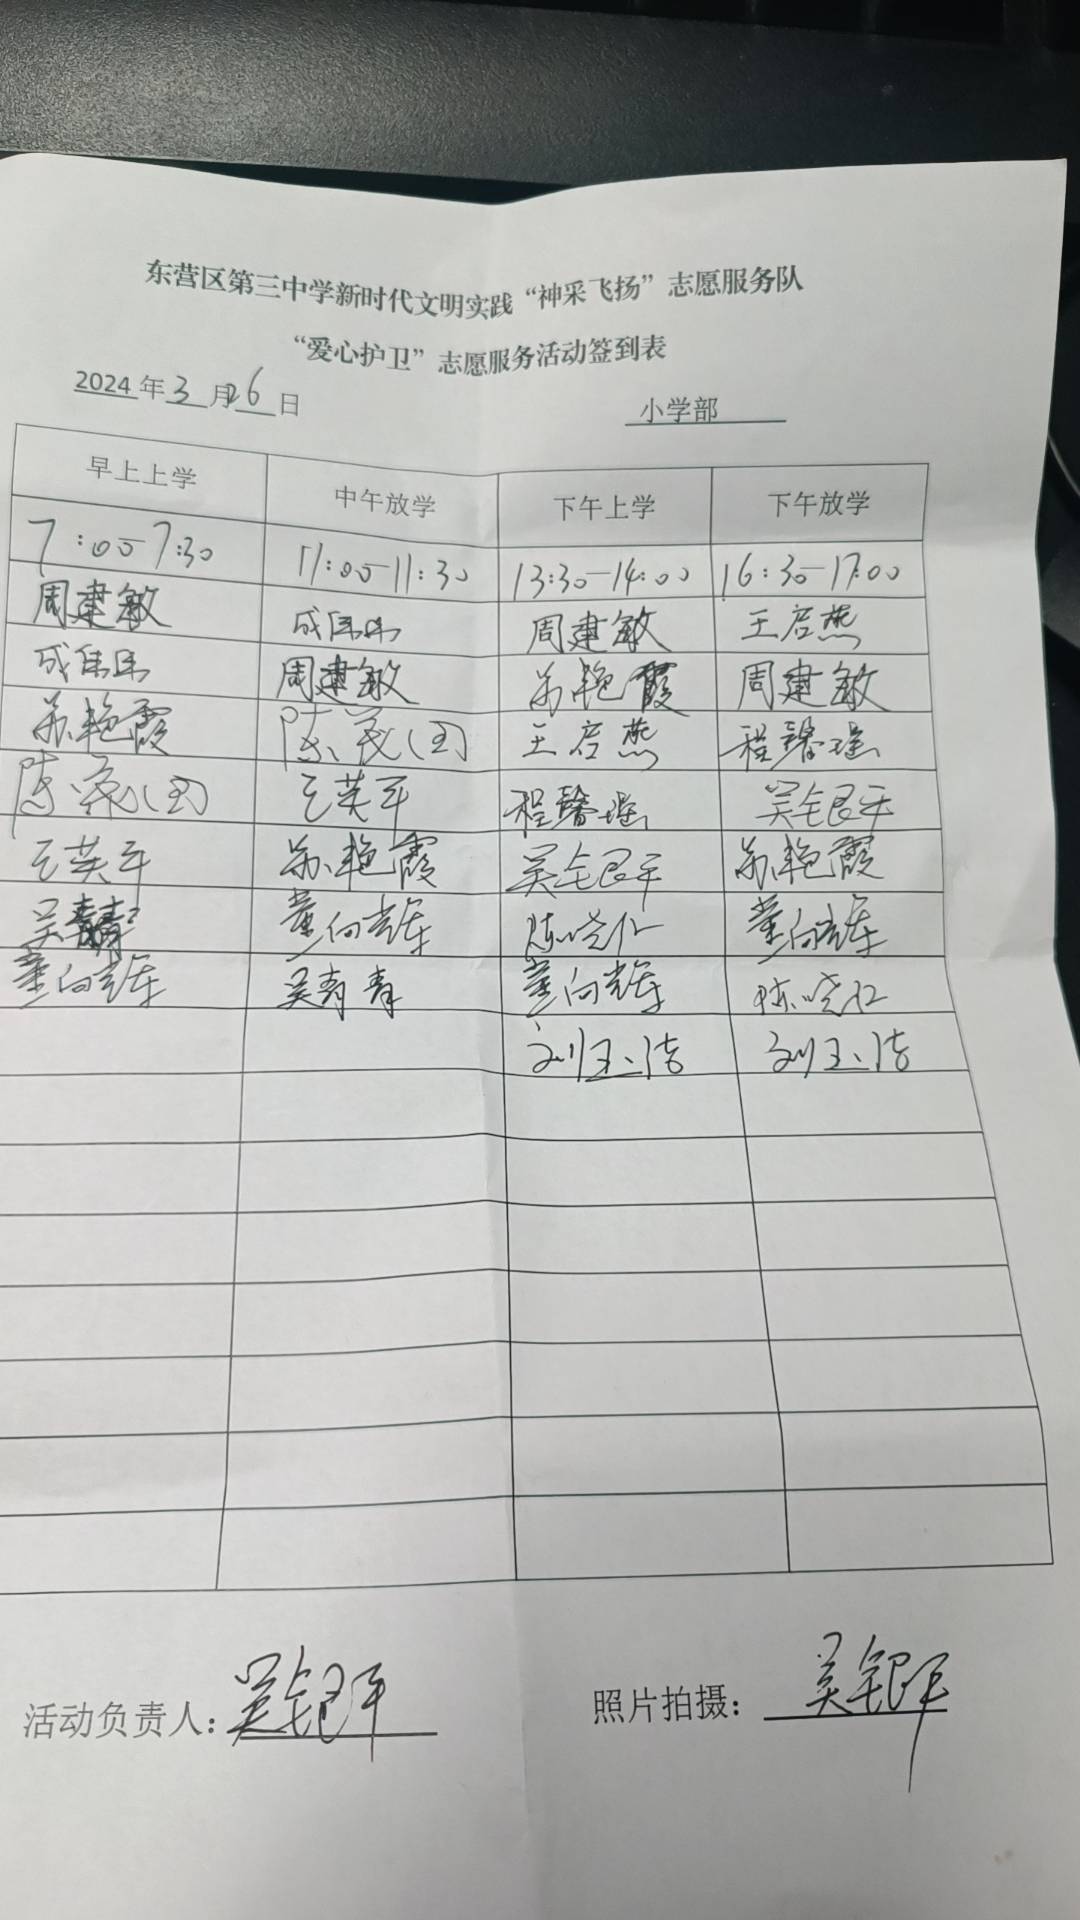 东营区第三中学新时代文明实践“神采飞扬”志愿服务队
“爱心护卫”志愿服务活动签到表
2024年3月26日 小学部
早上上学 中午放学 下午上学 下午放学
7:00-7:30 11:00-11:30 13:30-14:00 16:30-17:00
周建敏 成伟伟 周建敏 王启燕
成伟伟 周建敏 苏艳霞 周建敏
苏艳霞 王启燕 程馨瑶
程馨瑶 吴银平
王英平 苏艳霞 吴银平 苏艳霞
吴青青 董向辉 陈晓仁 董向辉
董向辉 吴青青 董向辉 陈晓仁
刘玉洁 刘玉洁
活动负责人：吴银平 照片拍摄：吴银平